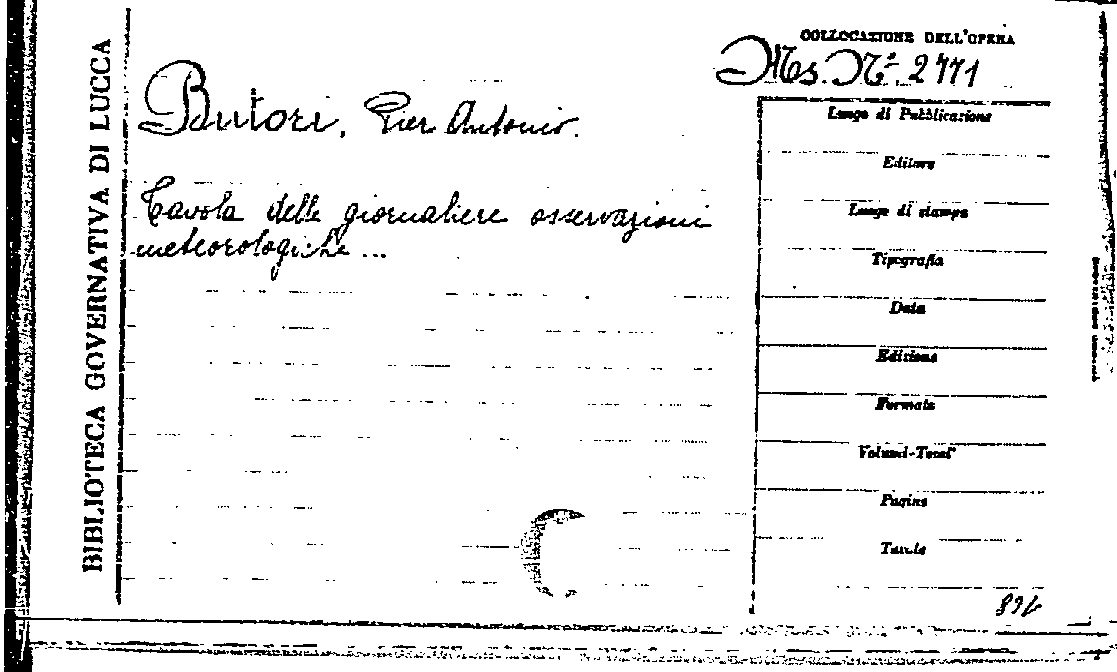 BIBLIOTECA GOVERNATIVA DI LUCCA
COLLOCAZIONE DELL'OPERA
Ms. N.º 2771
Butori, Pier Antonio.
Tavola delle giornaliere osservazioni
meteorologiche ...
Luogo di Pubblicazione
Editore
Luogo di stampa
Tipografia
Data
Edizione
Formato
Volumi-Tomi
Pagine
Tavole